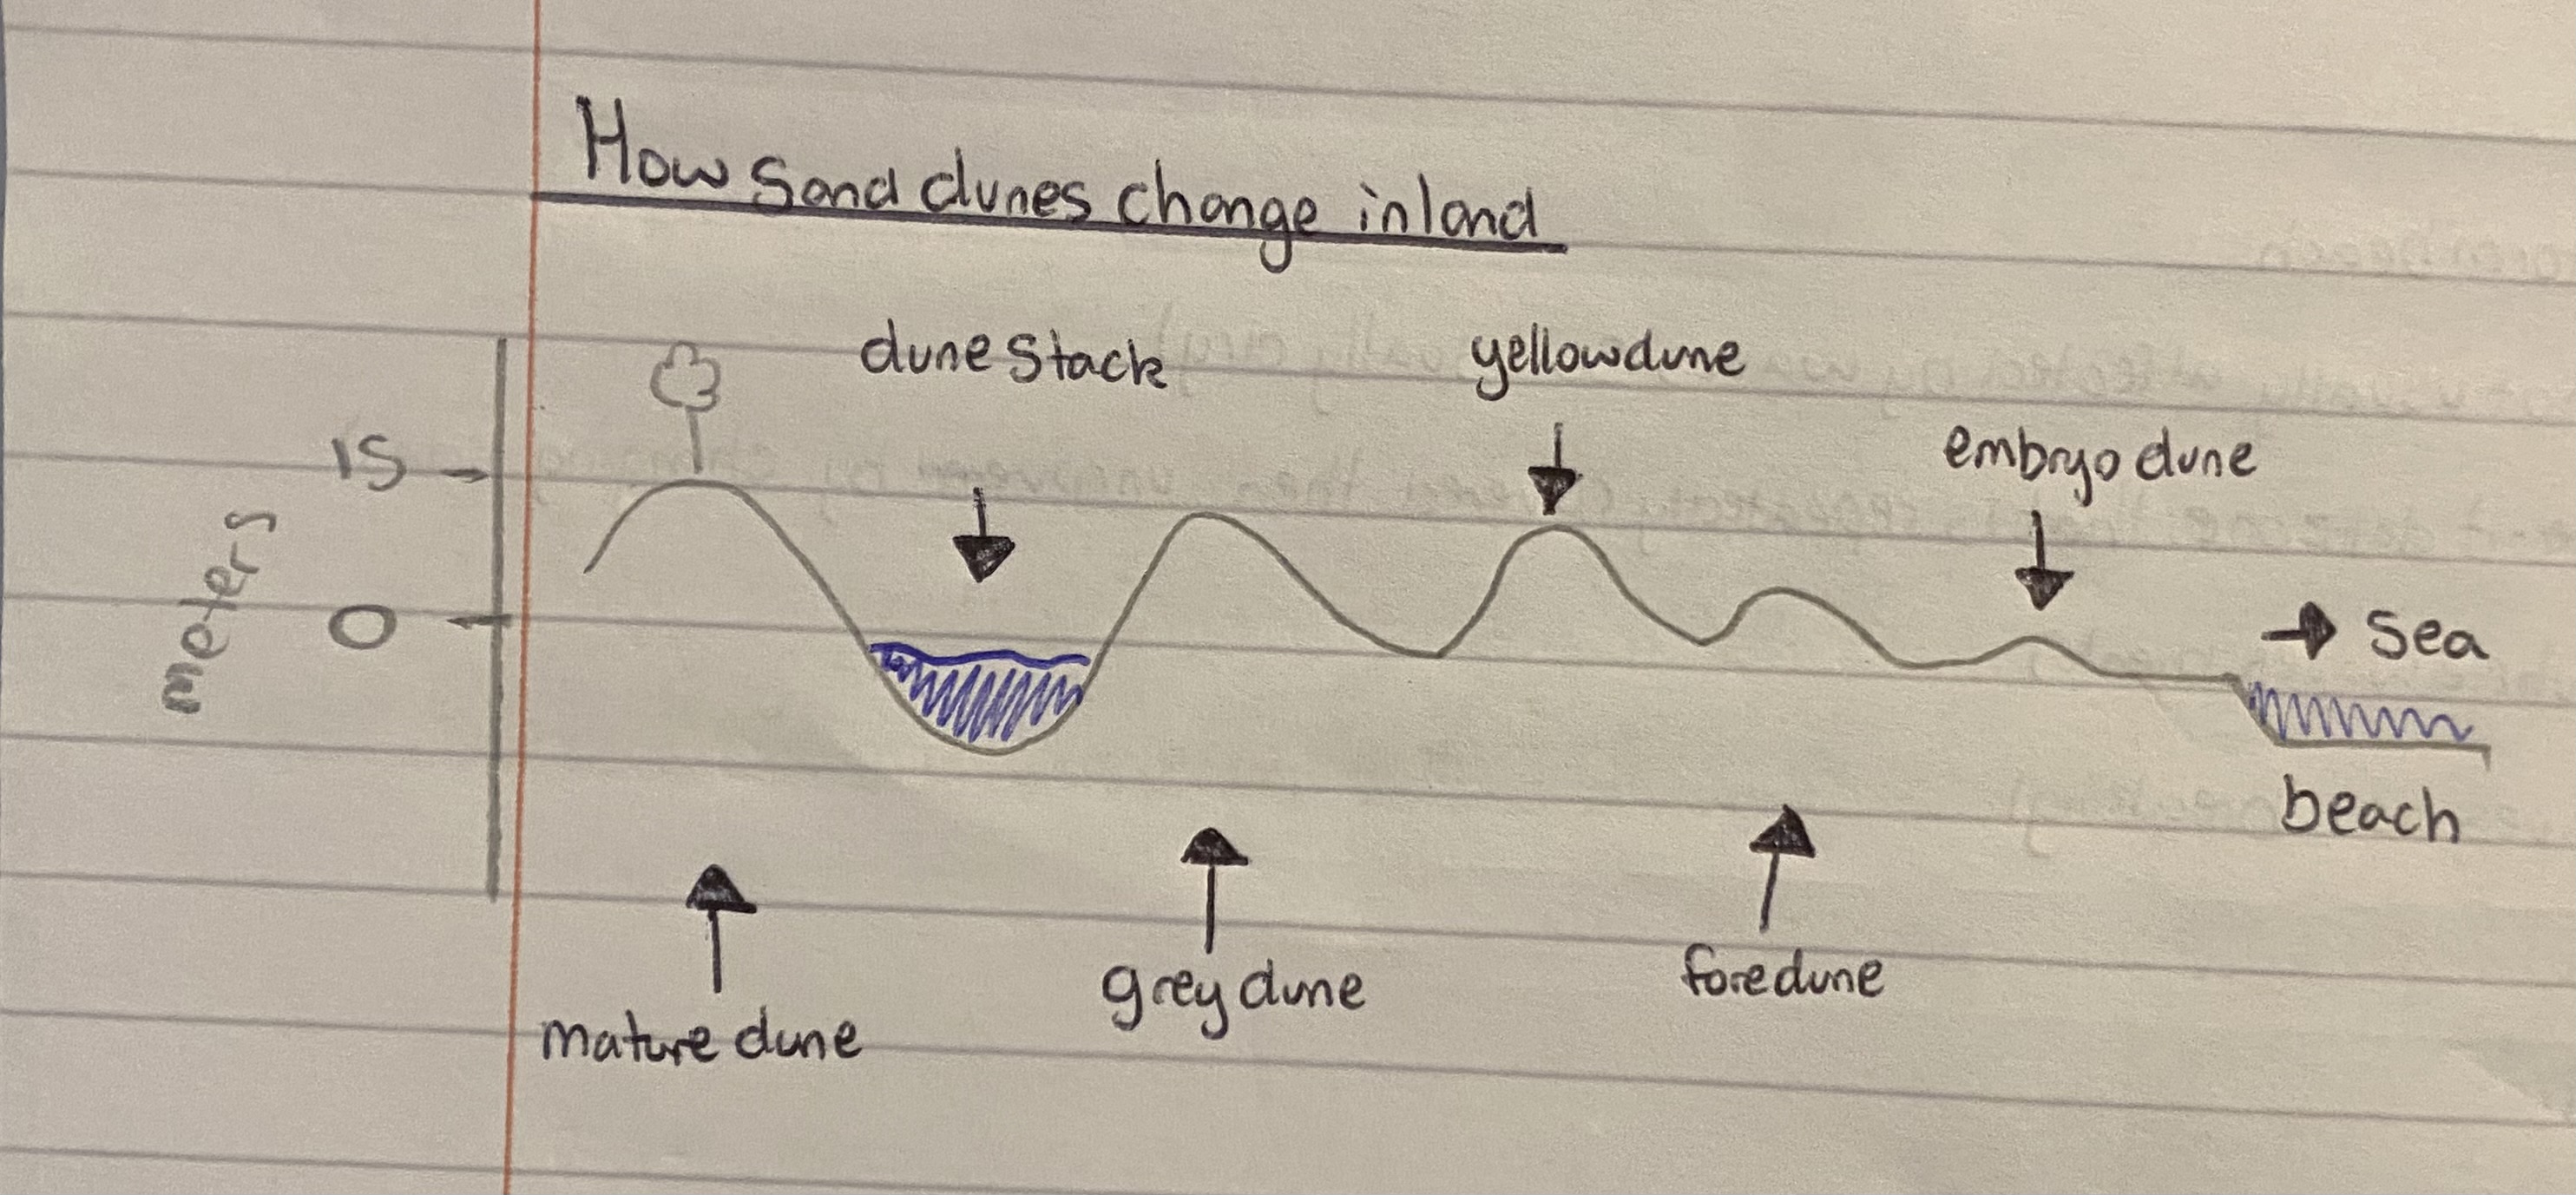 How sand dunes change inland
dune stack
yellow dune
embryo dune
15
0
meters
→ sea
beach
mature dune
grey dune
foredune